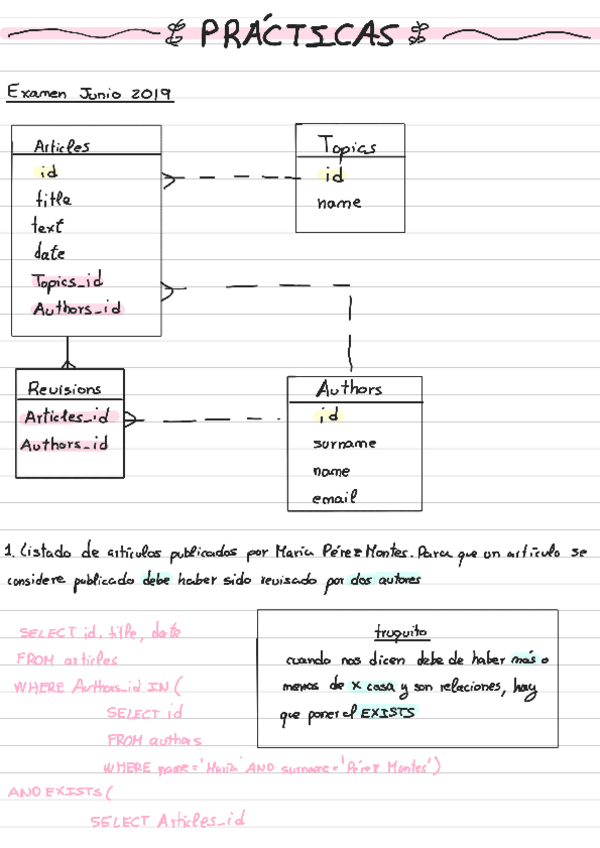 PRÁCTICAS
Examen Junio 2019
Articles
id
title
text
date
Topics_id
Authors_id
Topics
id
name
Revisions
Articles_id
Authors_id
Authors
id
surname
name
email
1. Listado de artículos publicados por María Pérez Montes. Para que un artículo se
considere publicado debe haber sido revisado por dos autores
SELECT id, title, date
FROM articles
WHERE Authors_id IN (
SELECT id
FROM authors
WHERE name='María' AND surname='Pérez Montes')
AND EXISTS (
SELECT Articles_id
truquito
cuando nos dicen debe de haber más o
menos de x cosa y son relaciones, hay
que poner el EXISTS